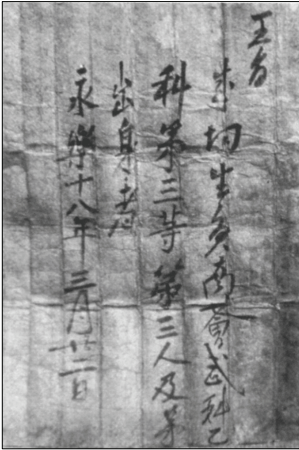 王旨
成均生員南薈武科乙
科第三等第三人及第
出身者
永樂十八年三月廿一日